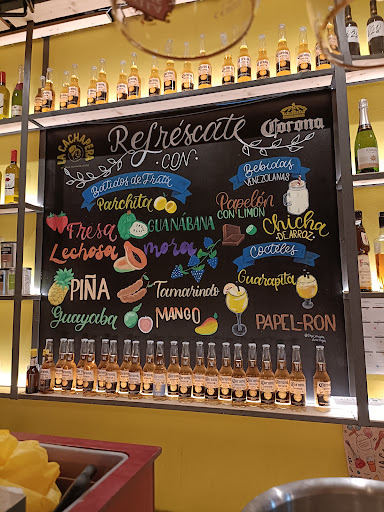 LA CACHAPERA
Refréscate
CON
Corona
Batidos de Fruta
Parchita
Fresa
GUANÁBANA
Lechosa
mora
PIÑA
Tamarindo
Guayaba
MANGO
Bebidas
VENEZOLANAS
Papelón
CON LIMÓN
Chicha
DE ARROZ
Cocteles
Guarapita
PAPEL-RON